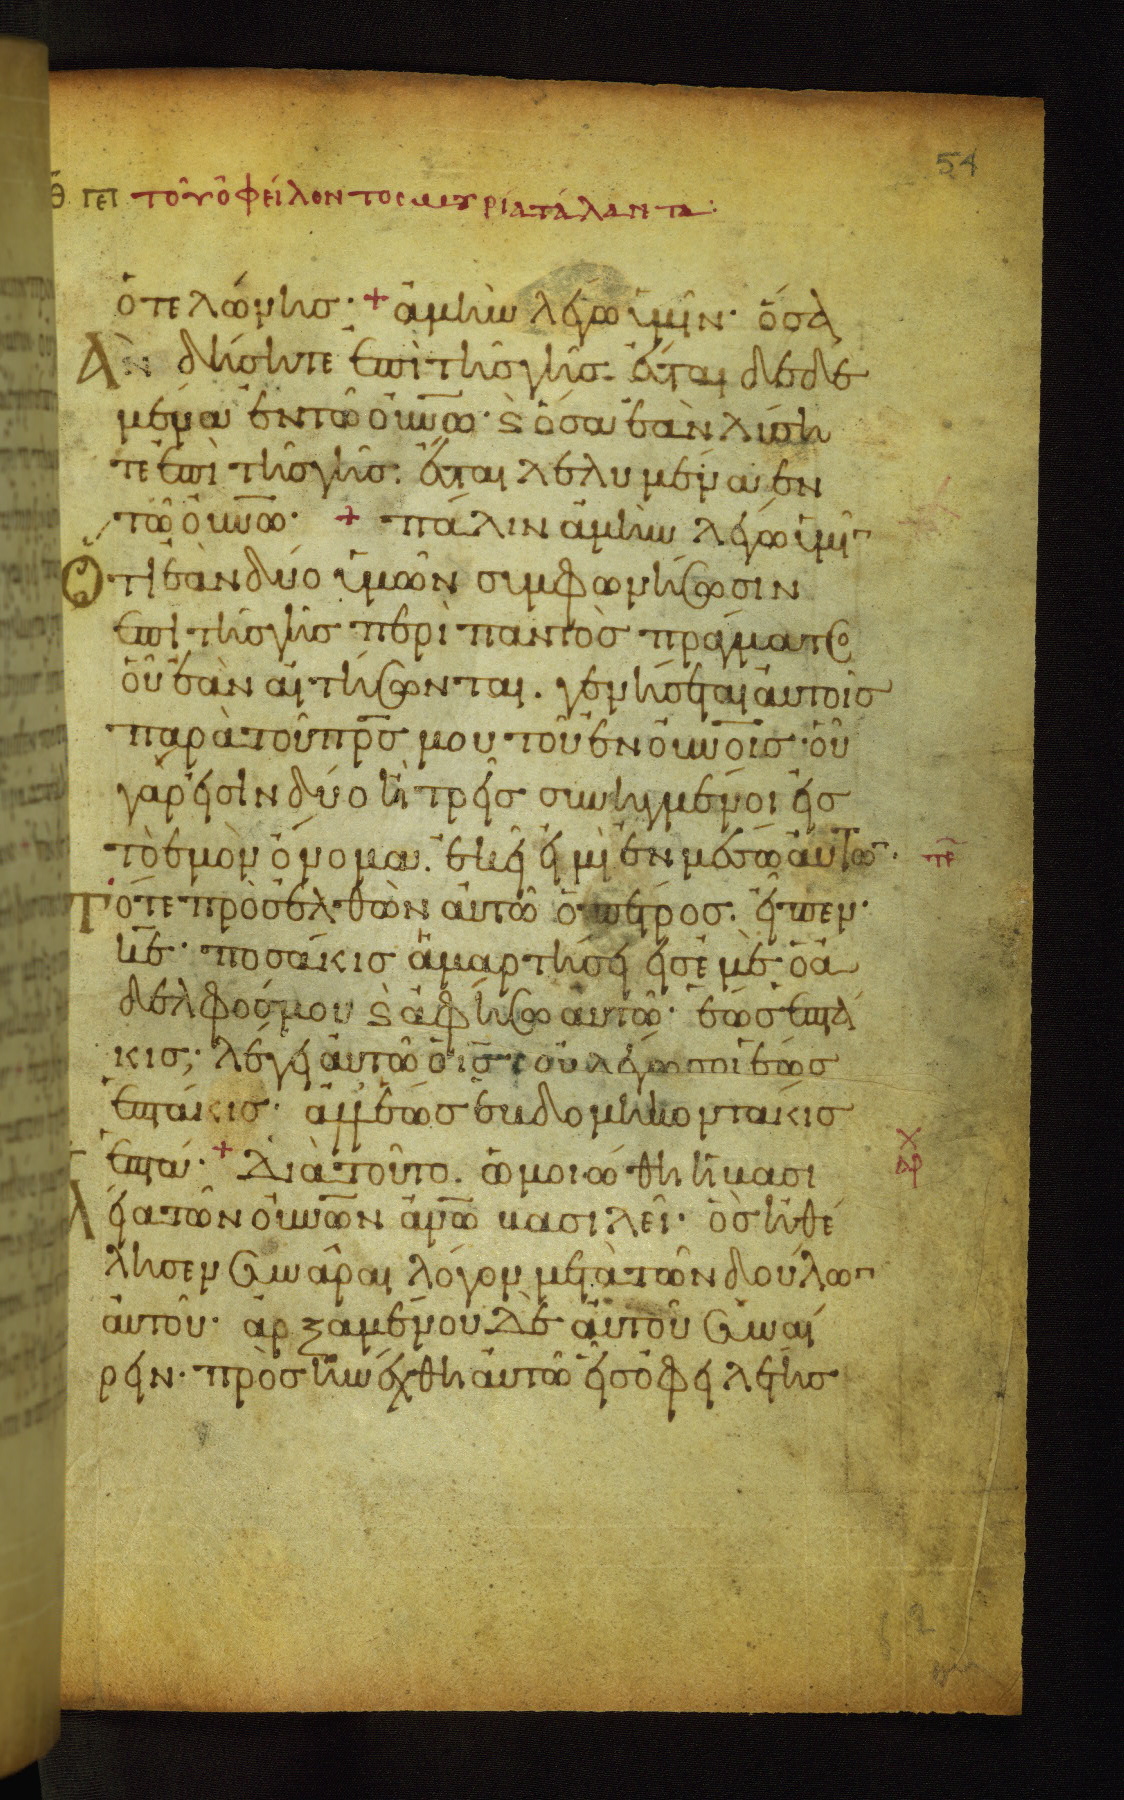 54
πε τοῦ ὀφείλοντος μυρία τάλαντα:
ὁ τελώνης· + ἀμὴν λέγω ὑμῖν· ὅσα
ἂν δήσητε ἐπὶ τῆς γῆς. ἔσται δεδε
μένα ἐν τῶ οὐνῶ· καὶ ὅσα ἐὰν λύση
τε ἐπὶ τῆς γῆς. ἔσται λελυμένα ἐν
τῶ οὐνῶ· + πάλιν ἀμὴν λέγω ὑμῖν
Ὅτι ἐὰν δύο ὑμῶν συμφωνήσωσιν
ἐπὶ τῆς γῆς περὶ παντὸς πράγματος
οὗ ἐὰν αἰτήσωνται. γενήσεται αὐτοῖς
παρὰ τοῦ πρς μου τοῦ ἐν οὐνοῖς· οὗ
γάρ εἰσιν δύο ἢ τρεῖς συνηγμένοι εἰς
τὸ ἐμὸν ὄνομα. ἐκεῖ εἰμὶ ἐν μέσω αὐτῶν·
Τότε προσελθὼν αὐτῶ ὁ πέτρος. εἶπεν·
κε· ποσάκις ἁμαρτήσει εἰς ἐμὲ ὁ ἀ
δελφός μου καὶ ἀφήσω αὐτῶ· ἕως ἑπτά
κις; λέγει αὐτῶ ὁ ις οὐ λέγω σοι ἕως
ἑπτάκις· ἀλλ' ἕως ἑβδομηκοντάκις
ἑπτά· + Διὰ τοῦτο. ὡμοιώθη ἡ βασι
λεία τῶν οὐνῶν ἀνῶ βασιλεῖ· ὃς ἠθέ
λησεν συνᾶραι λόγον μετὰ τῶν δούλων
αὐτοῦ· ἀρξαμένου δὲ αὐτοῦ συναί
ρειν· προσηνέχθη αὐτῶ εἷς ὀφειλέτης